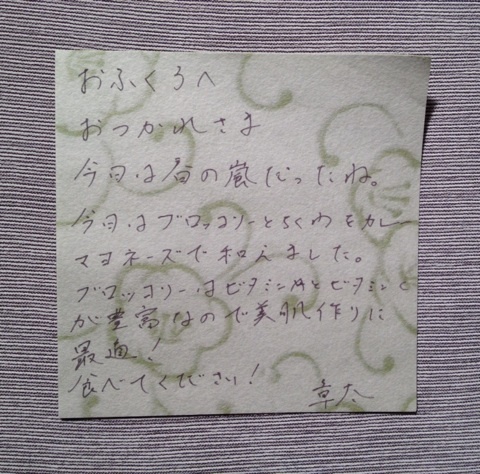 おふくろへ
おつかれさま
今日は春の嵐だったね。
今日はブロッコリーとちくわをカレー
マヨネーズで和えました。
ブロッコリーはビタミンAとビタミンC
が豊富なので美肌作りに
最適!
食べてください!
章太